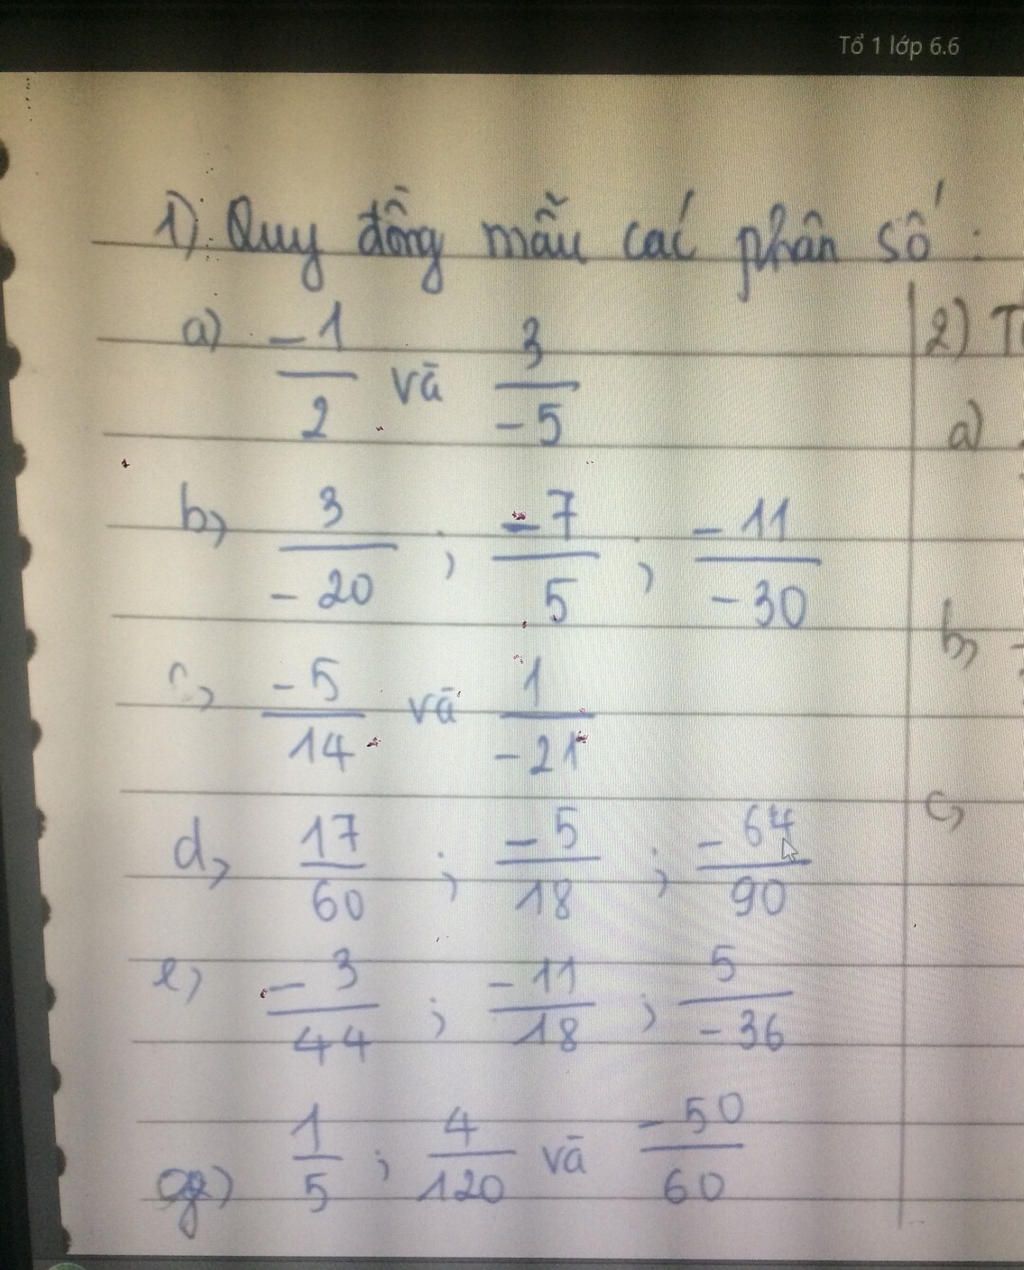 Tổ 1 lớp 6.6
1) Quy đồng mẫu các phân số :
a) -1/2 và 3/-5
b) 3/-20 ; -7/5 ; -11/-30
c) -5/14 và 1/-21
d) 17/60 ; -5/18 ; -64/90
e) -3/44 ; -11/18 ; 5/-36
g) 1/5 ; 4/120 và -50/60
2) T
a)
b)
c)